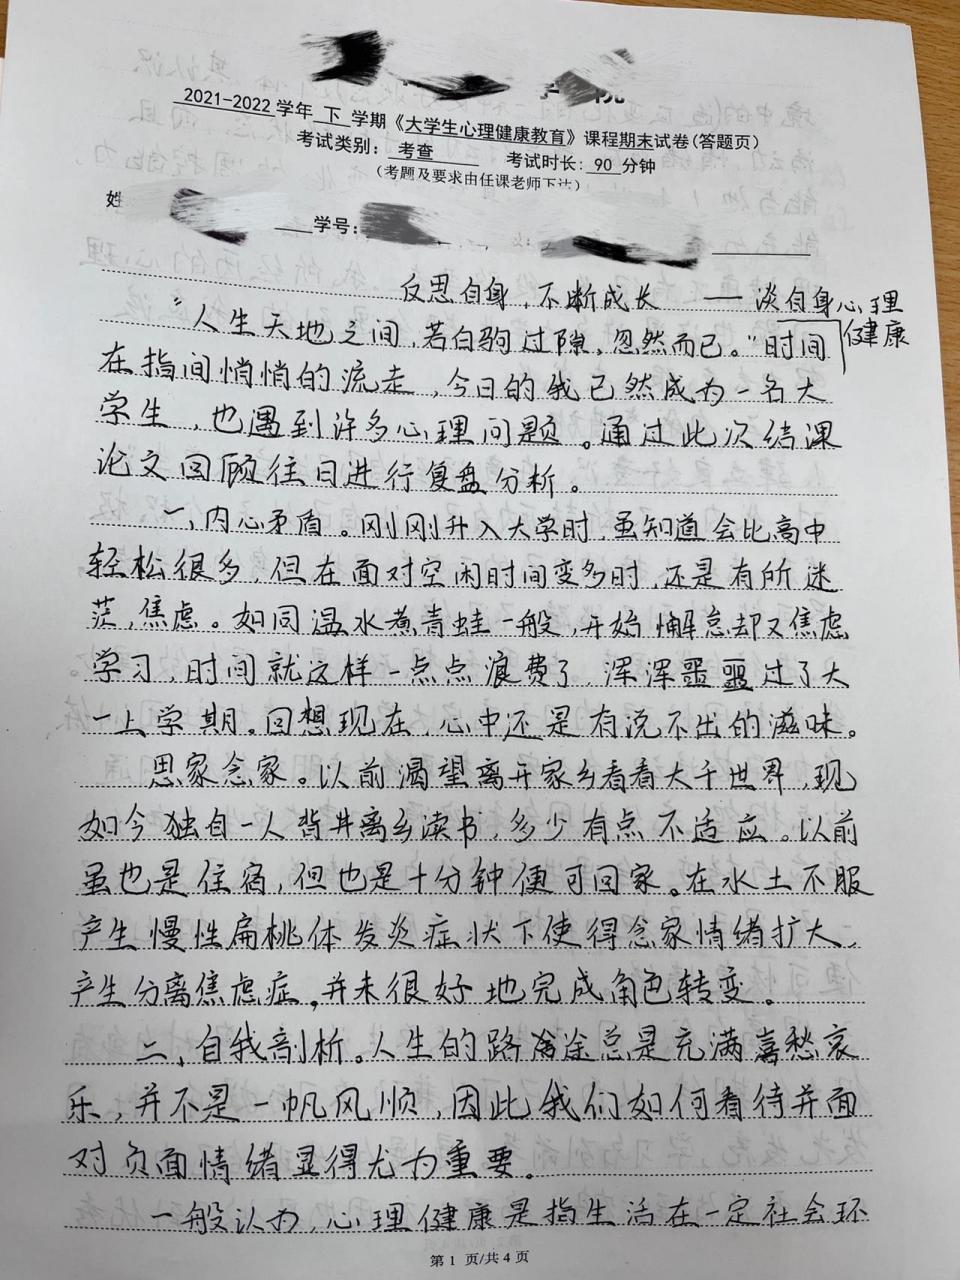 2021-2022 学年 下 学期《大学生心理健康教育》课程期末试卷(答题页)
考试类别: 考查 考试时长: 90 分钟
(考题及要求由任课老师下达)
姓
学号:
反思自身,不断成长 —— 淡自身心理
健康
“人生天地之间,若白驹过隙,忽然而已。”时间
在指间悄悄的流走,今日的我已然成为一名大
学生,也遇到许多心理问题。通过此次结课
论文回顾往日进行复盘分析。
一,内心矛盾。刚刚升入大学时,虽知道会比高中
轻松很多,但在面对空闲时间变多时,还是有所迷
茫,焦虑。如同温水煮青蛙一般,开始懈怠却又焦虑
学习,时间就这样一点点浪费了,浑浑噩噩过了大
一上学期。回想现在,心中还是有说不出的滋味。
思家念家。以前渴望离开家乡看看大千世界,现
如今独自一人背井离乡读书,多少有点不适应。以前
虽也是住宿,但也是十分钟便可回家。在水土不服
产生慢性扁桃体发炎症状下使得念家情绪扩大,
产生分离焦虑症,并未很好地完成角色转变。
二,自我剖析。人生的路途总是充满喜愁哀
乐,并不是一帆风顺,因此我们如何看待并面
对负面情绪显得尤为重要。
一般认为,心理健康是指生活在一定社会环
第 1 页/共 4 页